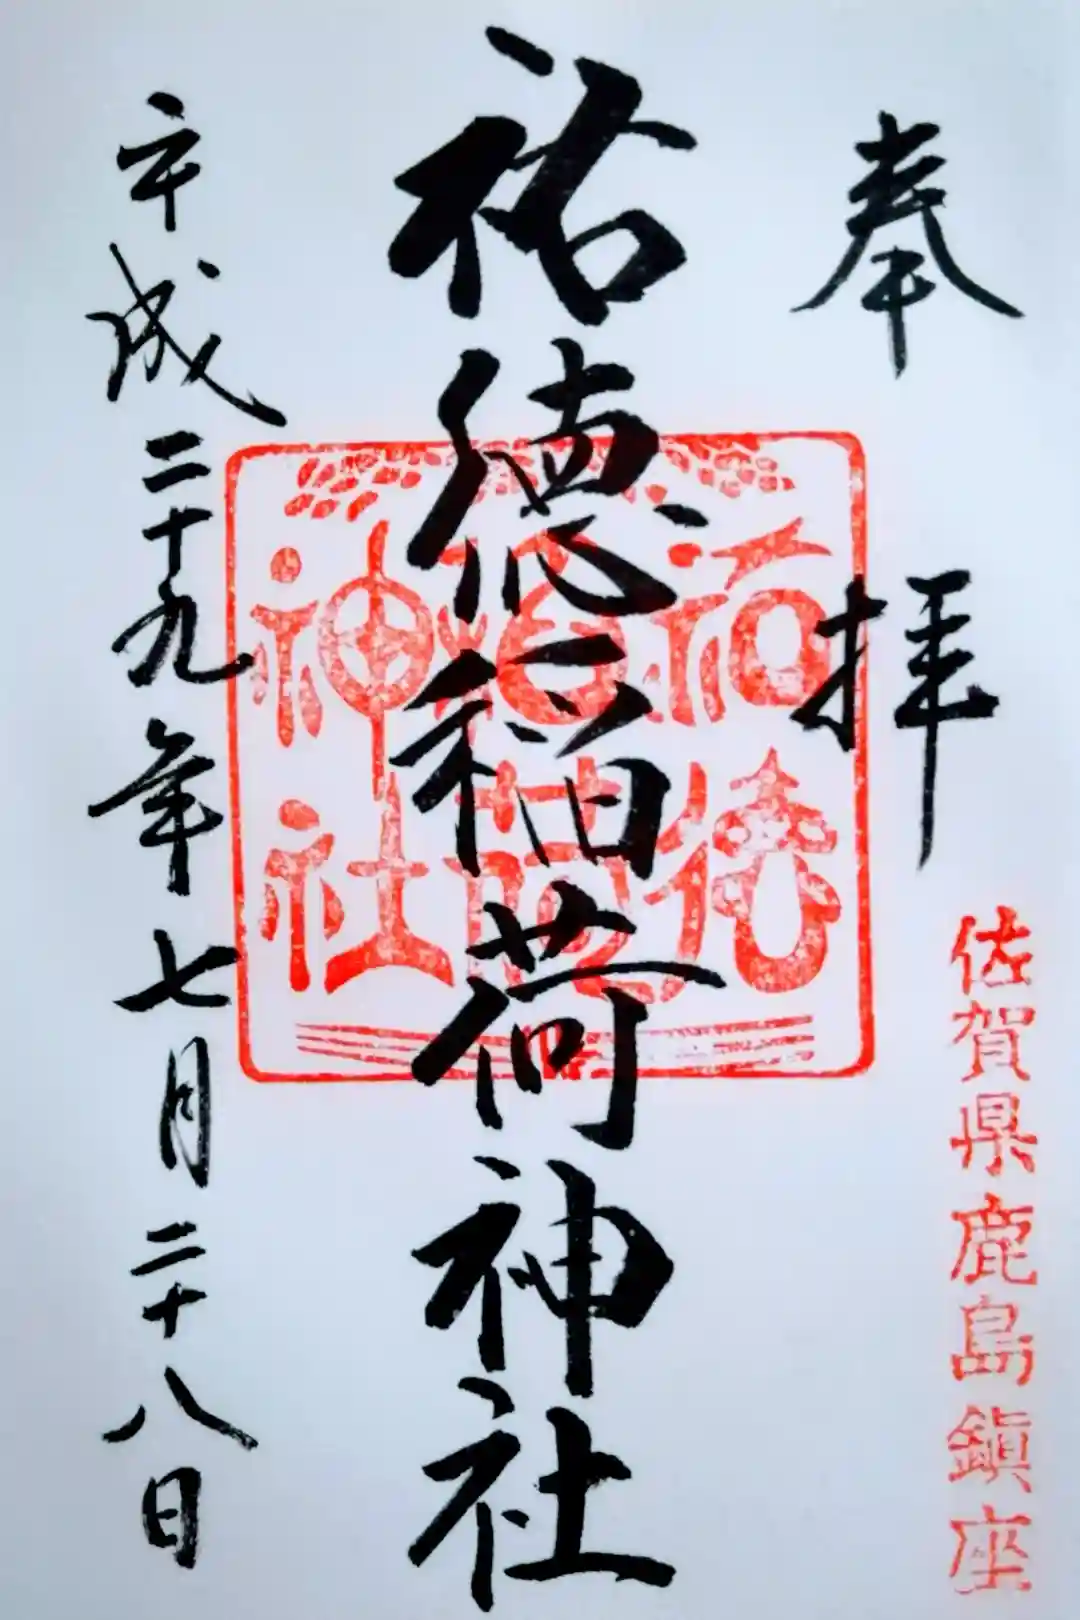 奉拝
佐賀県鹿島鎮座
祐徳稲荷神社
祐徳
稲荷
神社
平成二十九年七月二十八日